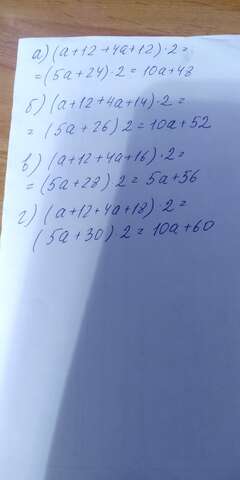 а) (a+12+4a+12)·2=
=(5a+24)·2=10a+48
б) (a+12+4a+14)·2=
= (5a+26) 2=10a+52
в) (a+12+4a+16)·2=
=(5a+28) 2=5a+56
г) (a+12+4a+18)·2=
(5a+30) 2=10a+60